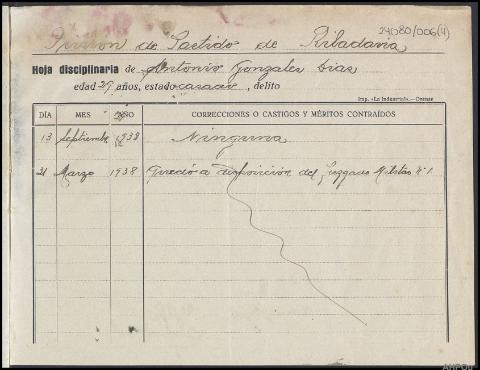 24080/006(4)
Prision de Partido de Ribadavia
Hoja disciplinaria de Antonio Gonzales Dias
edad 29 años, estado casado, delito
Imp. «La Industrial».—Orense
DÍA MES AÑO CORRECCIONES O CASTIGOS Y MÉRITOS CONTRAÍDOS
13 Septiembre 1938 Ninguna
21 Marzo 1938 Quedó a disposición del Juzgado Militar Nº 1
AHPOu